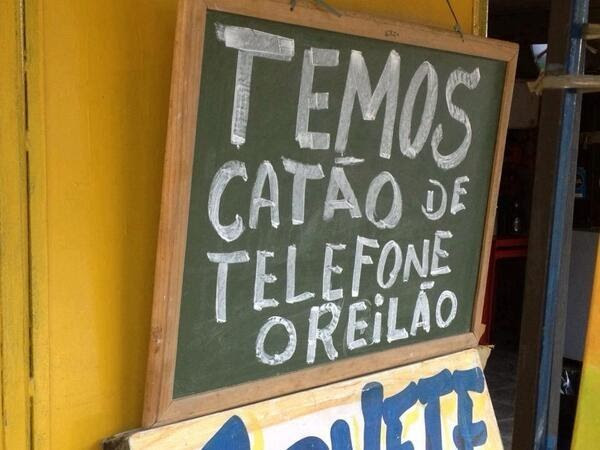 TEMOS
CATÃO DE
TELEFONE
OREILÃO